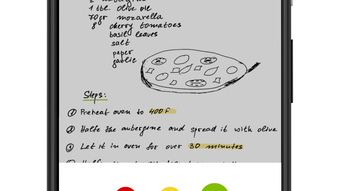 1 tbl. olive oil
70gr mozarella
8 cherry tomatoes
basil leaves
salt
peper
garlic
Steps:
1 Preheat oven to 400F
2 Halfe the aubergene and spread it with olive
3 Let it in oven for over 30 minutes